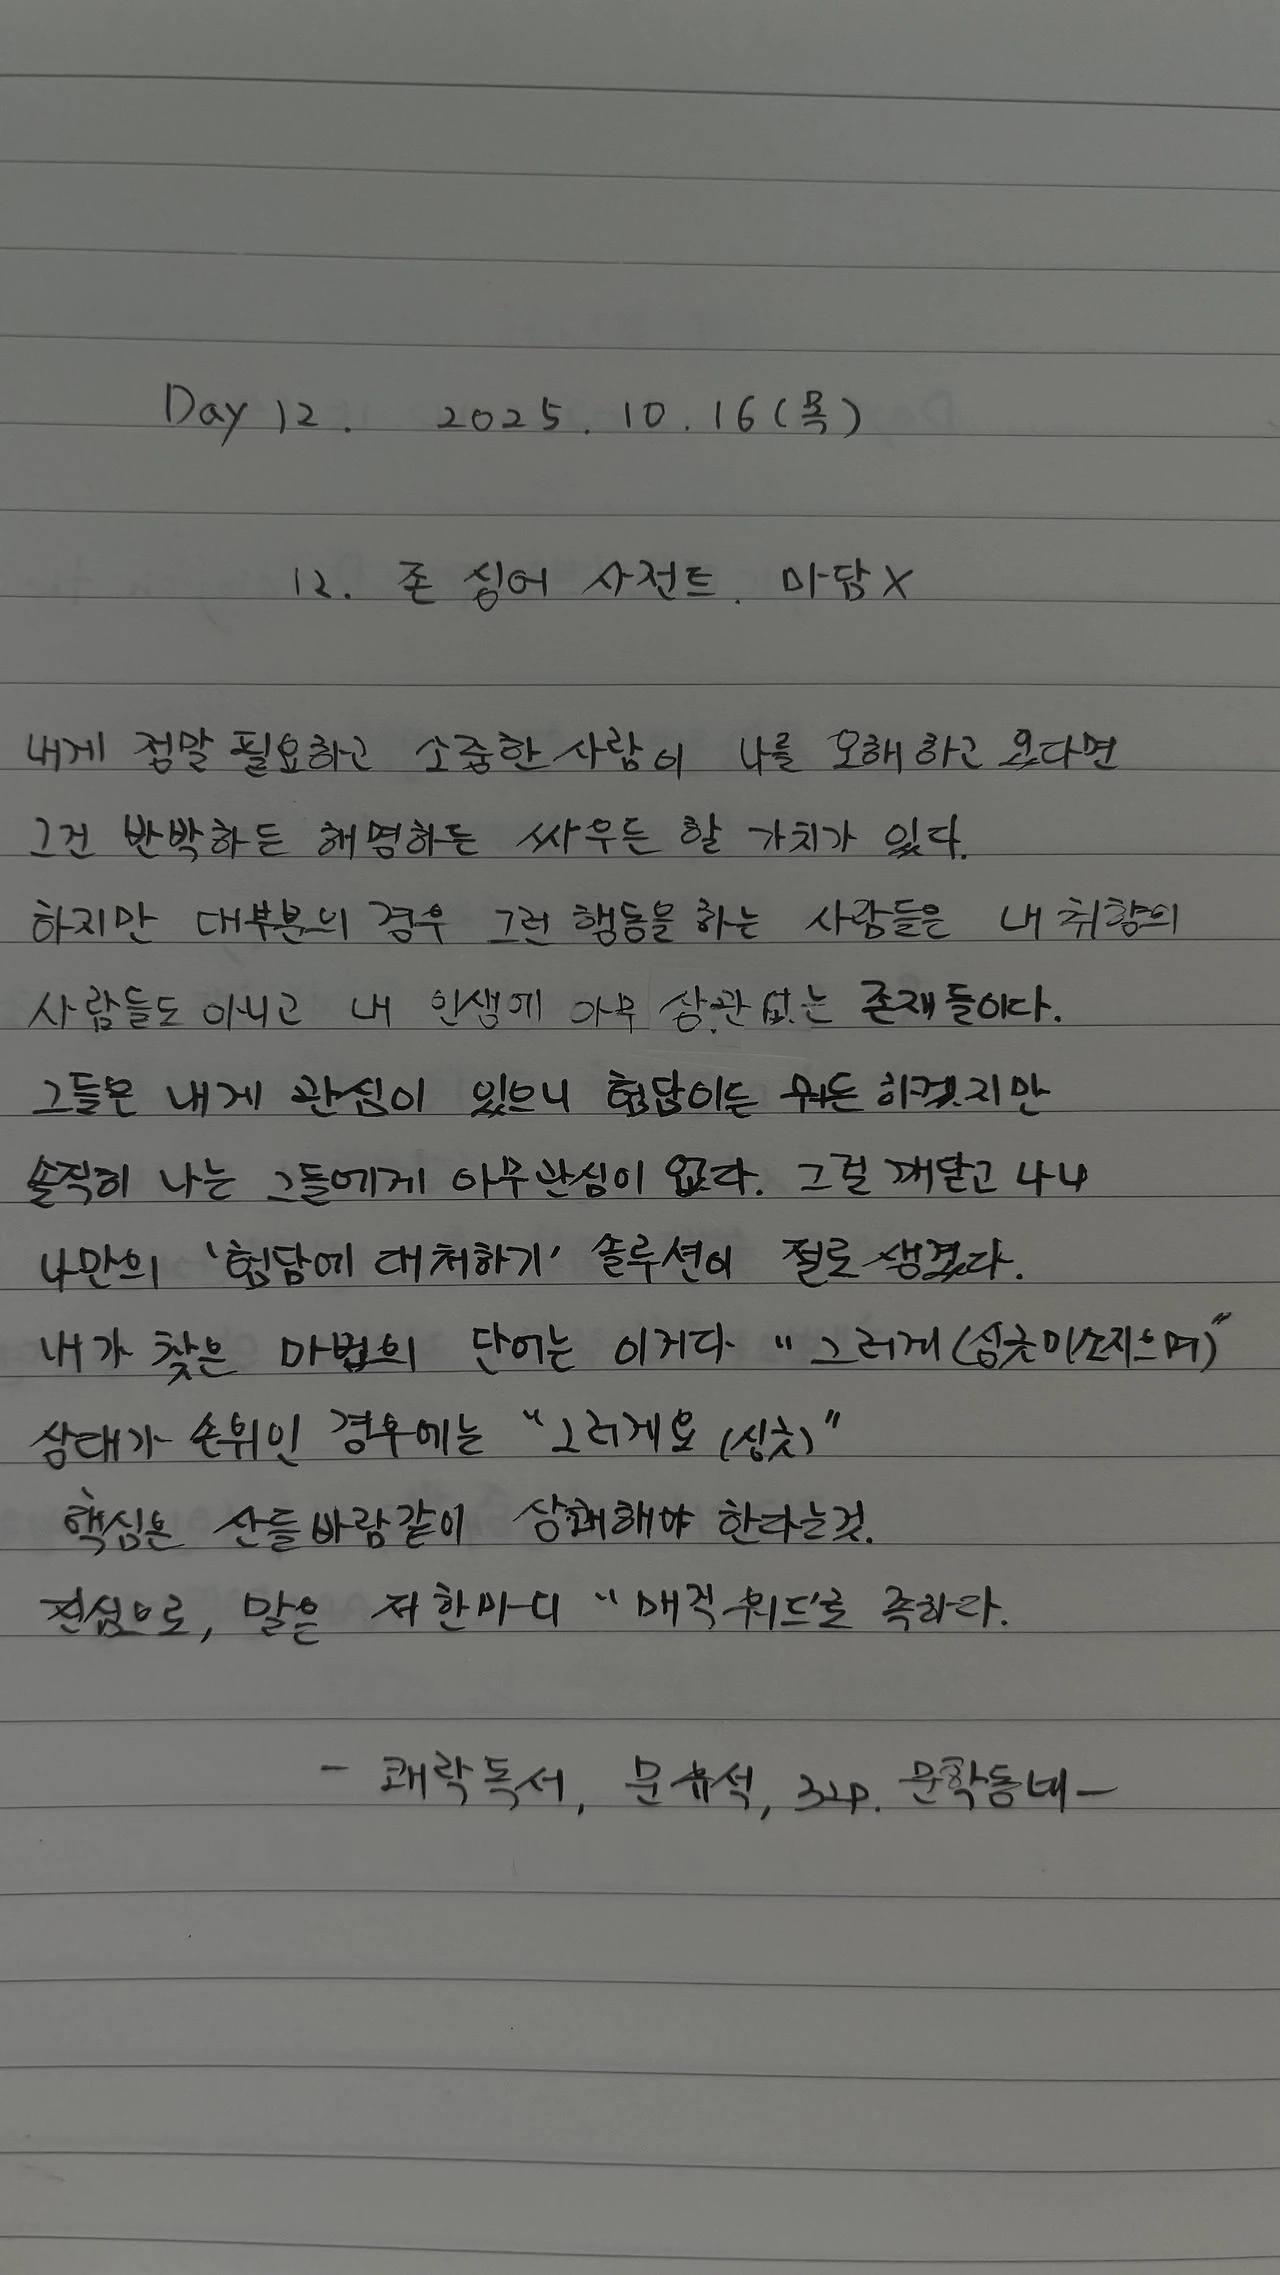 Day 12. 2025. 10. 16(목)
12. 존 싱어 사전트. 마담X
내게 정말 필요하고 소중한 사람이 나를 오해하고 있다면
그건 반박하든 해명하든 싸우든 할 가치가 있다.
하지만 대부분의 경우 그런 행동을 하는 사람들은 내 취향의
사람들도 아니고 내 인생에 아무 상관없는 존재들이다.
그들은 내게 관심이 있으니 험담이든 뭐든 하겠지만
솔직히 나는 그들에게 아무관심이 없다. 그걸 깨닫고 나니
나만의 '험담에 대처하기' 솔루션이 절로 생겼다.
내가 찾은 마법의 단어는 이거다 "그러게(싱긋미소지으며)"
상대가 손위인 경우에는 "그러게요 (싱긋)"
핵심은 산들바람같이 상쾌해야 한다는것.
진심으로, 말은 저 한마디 "매직워드"로 족하다.
- 쾌락독서, 문유석, 32p. 문학동네-